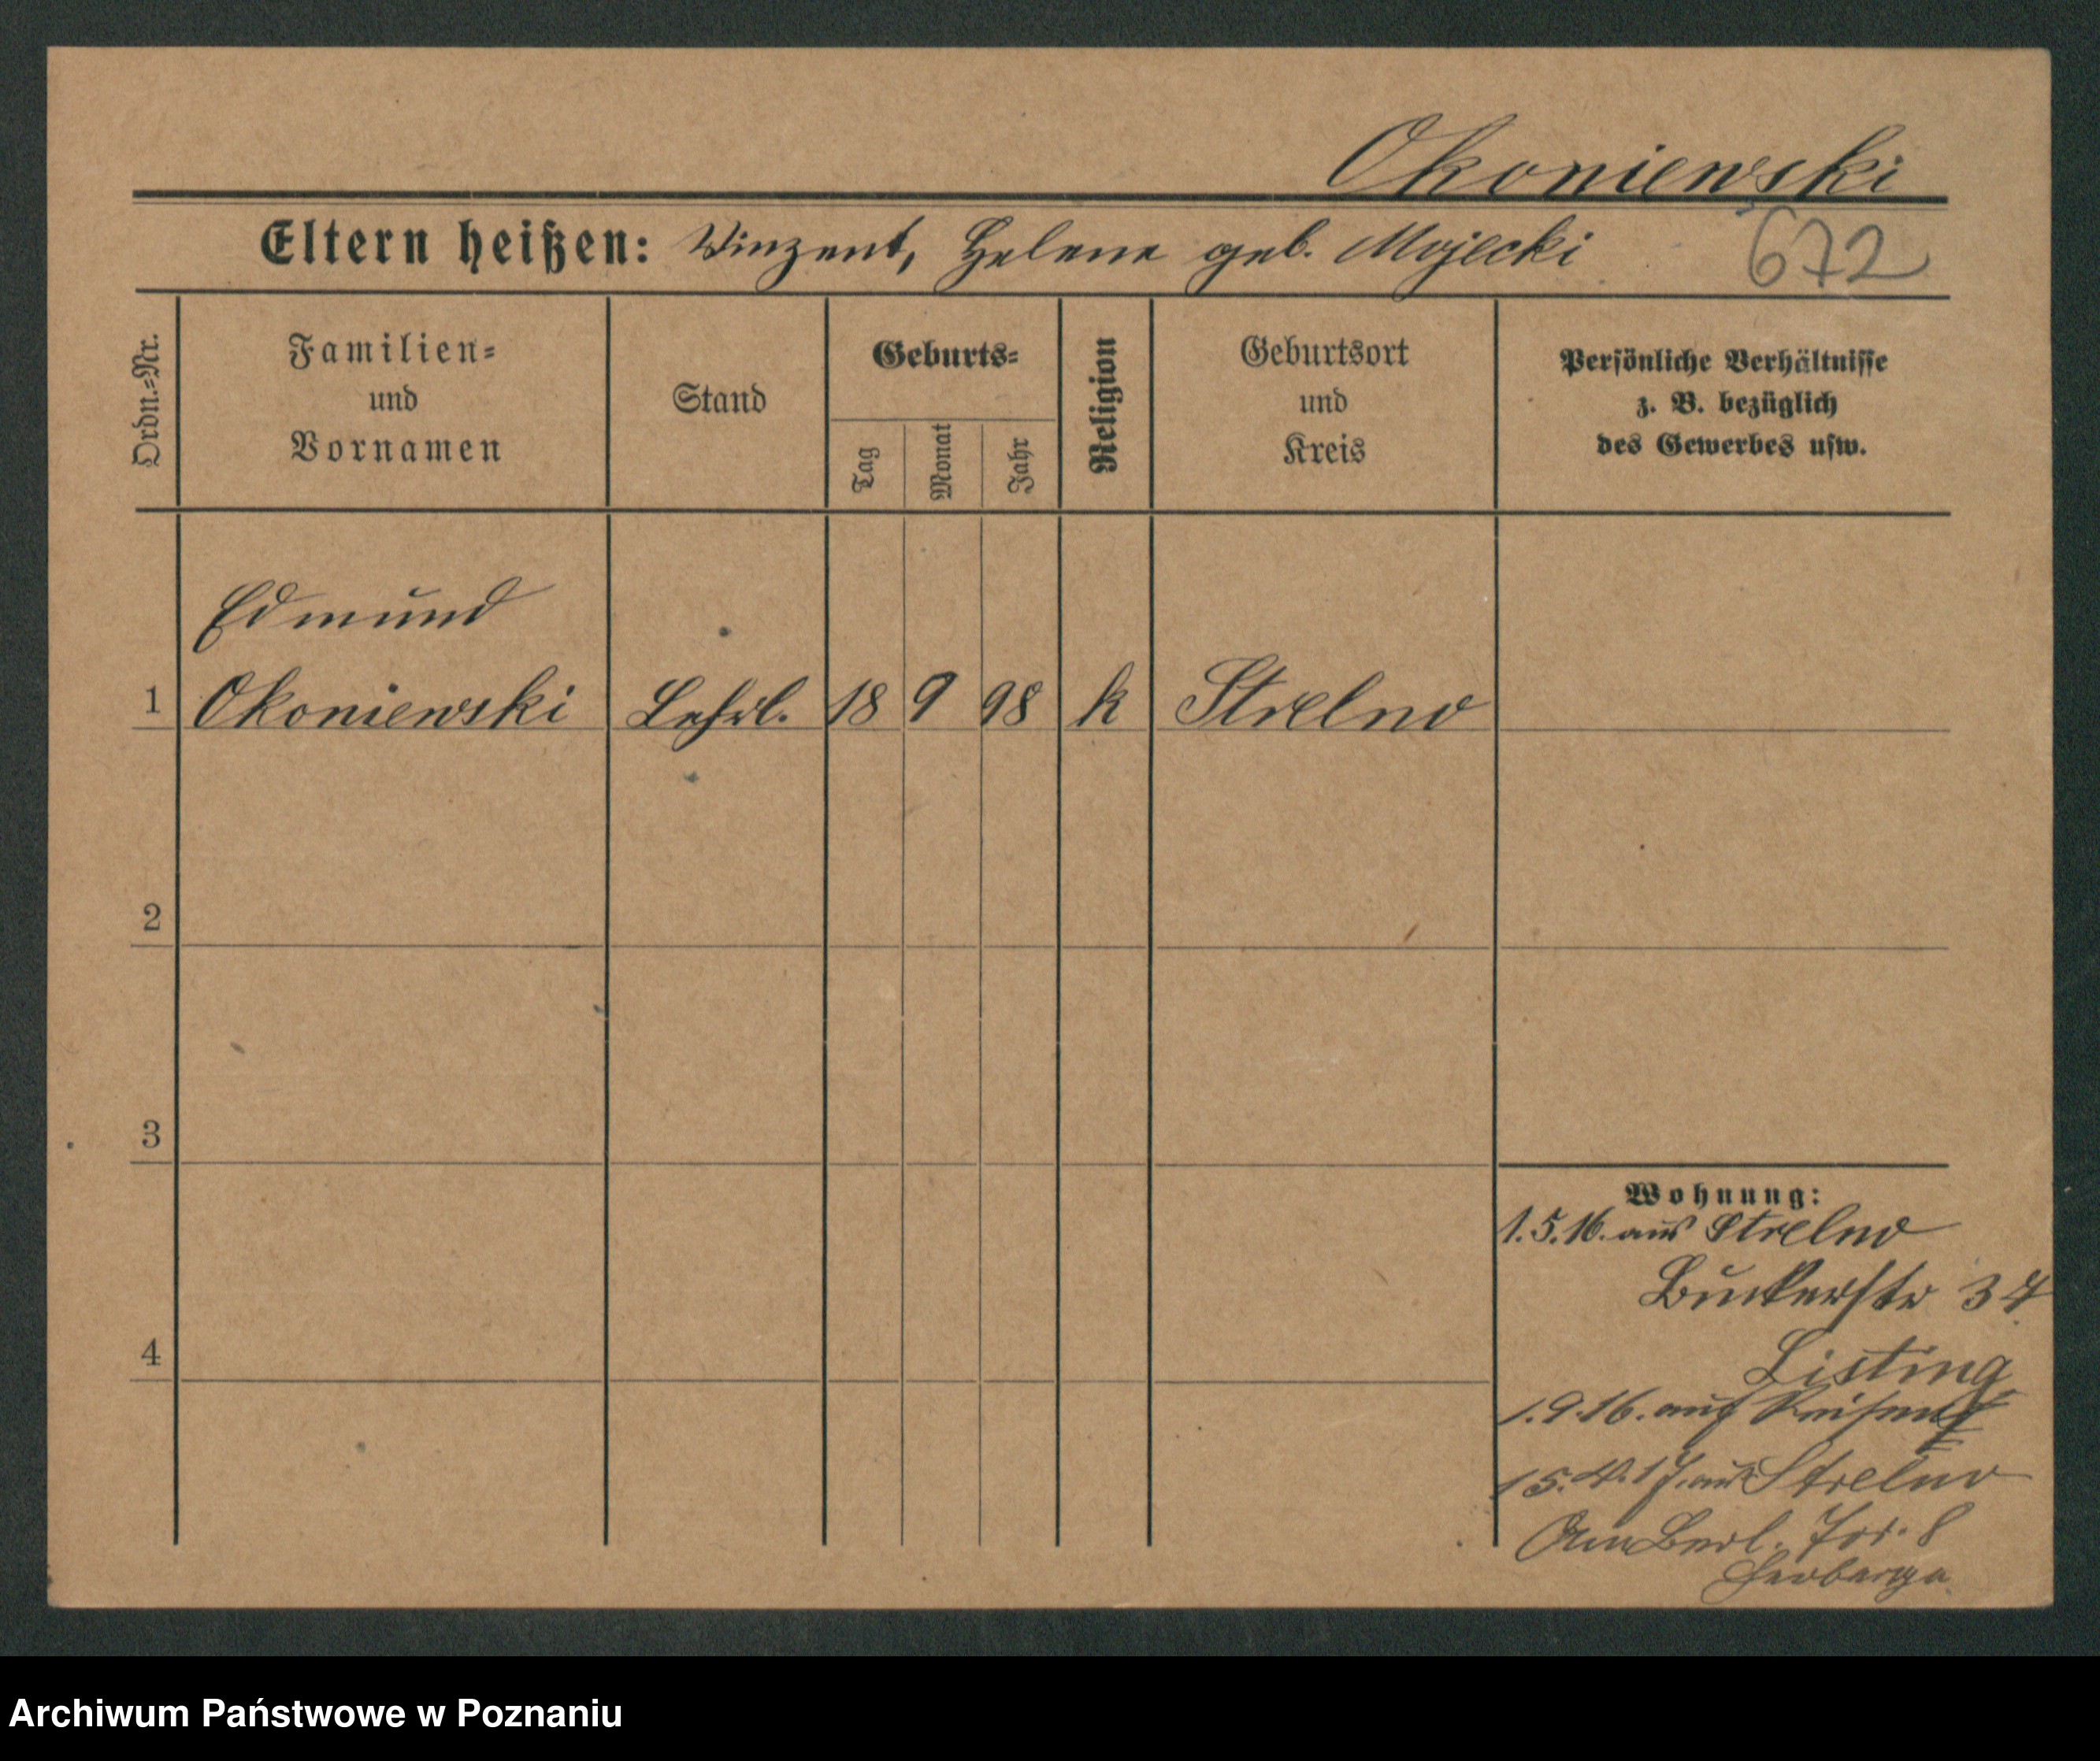 Okoniewski
Eltern heißen: Vinzent, Helene geb. Mojecki
672
Ordn.-Nr.
Familien-
und
Vornamen
Stand
Geburts-
Tag
Monat
Jahr
Religion
Geburtsort
und
Kreis
Persönliche Verhältnisse
z. B. bezüglich
des Gewerbes usw.
Edmund
1 Okoniewski Lehrl. 18 9 98 k Strelno
2
3
4
Wohnung:
1.5.16. aus Strelno
Bukerstr 34
Listing
1.9.16. auf Reisen
15.4.17. aus Strelno
Am Berl. Tor. 8
Herberge
Archiwum Państwowe w Poznaniu